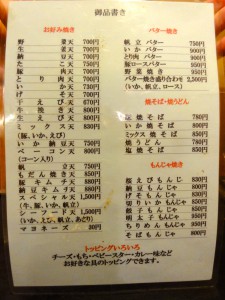 御品書き
お好み焼き
野菜天 700円
生菜天 700円
納豆天 700円
ねぎ天 700円
豚肉天 700円
とり肉天 700円
いか天 700円
げそ天 700円
干えび天 700円
牛焼き天 800円
生えび天 800円
ミックス天 830円
(豚、いか、えび)
いか納豆天 750円
ベーコン天 800円
(コーン入り)
帆立天 750円
もだん焼き天 850円
豚キムチ天 850円
納豆キムチ天 850円
スペシャル天 1,500円
(牛、豚、いか、帆立)
シーフード天 1,500円
(いか、えび、あさり、帆立)
マヨネーズ 30円
バター焼き
帆立バター 750円
いかバター 700円
とり肉バター 700円
豚ロースバター 750円
野菜焼き 950円
バター焼き盛り合わせ 2,500円
(いか、帆立、ロース)
焼そば・焼うどん
焼そば 750円
いか焼そば 750円
ミックス焼そば 850円
焼うどん 750円
塩焼そば 750円
もんじゃ焼き
桜えびもんじゃ 850円
納豆もんじゃ 850円
キムチもんじゃ 850円
切いかもんじゃ 850円
餃子もんじゃ 850円
明太子もんじゃ 850円
ちりめんもんじゃ 850円
そばもんじゃ 800円
トッピングいろいろ
チーズ・もち・ベビースター・カレー味など
お好きな具のトッピングできます。